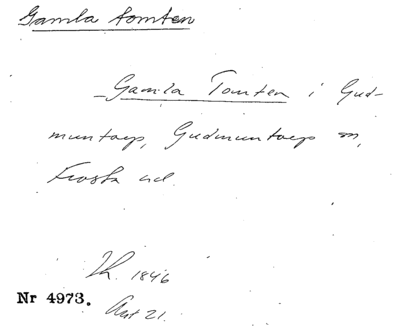 Gamla tomten
Gamla Tomten i Gud-
muntorp, Gudmuntorp sn,
Frosta hd.
Th. 1846
Nr 4973.
Akt 21.